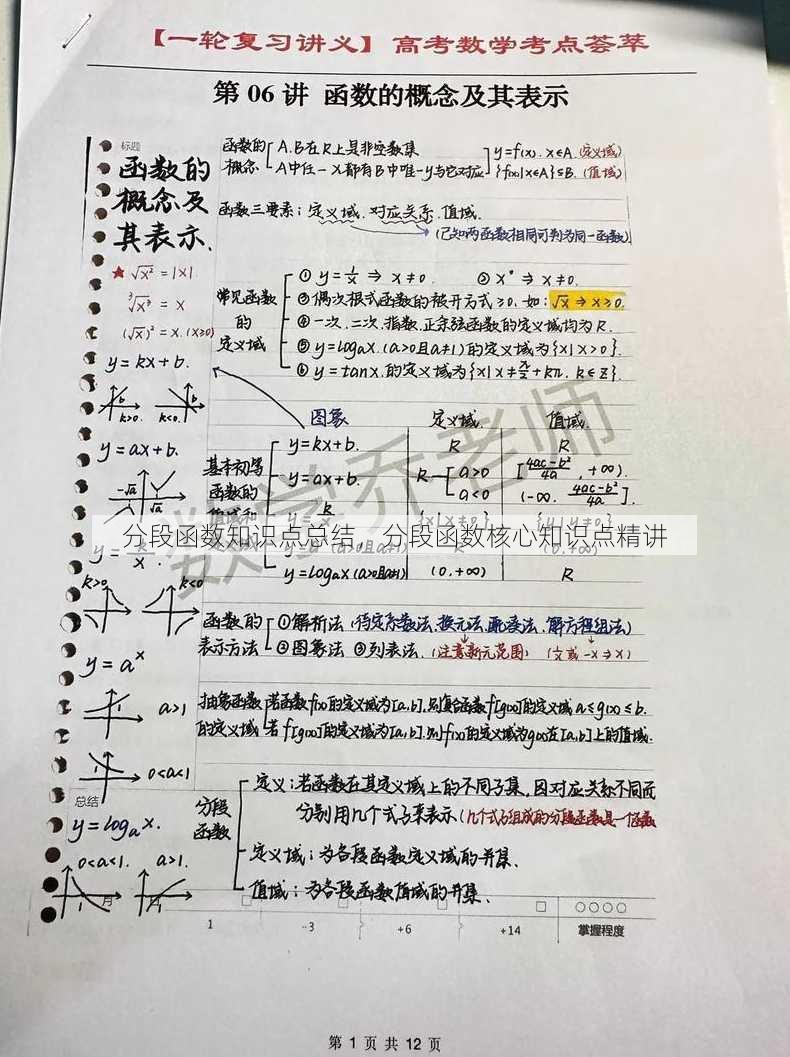 【一轮复习讲义】高考数学考点荟萃
第 06 讲 函数的概念及其表示
标题
函数的
概念及
其表示.
★ √x² = |x|
³√x³ = x
(√x)² = x. (x≥0)
y = kx + b.
b
b
k>0. k<0.
y = ax + b.
-√a √a
y = x
k>0 k<0
y = aˣ
1 a>1
1 0<a<1
总结
y = logₐx.
0<a<1. a>1.
1 1
函数的 A.B在R上是非空数集 y=f(x). x∈A. (定义域)
概念. A中任一x都有B中唯一y与它对应 {f(x)|x∈A}⊆B. (值域)
函数三要素: 定义域. 对应关系. 值域.
(已知两函数相同可判为同一函数)
常见函数
的
定义域
① y = 1/x ⇒ x≠0. ② x⁰ ⇒ x≠0.
③ 偶次根式函数的被开方式≥0. 如: √x ⇒ x≥0.
④ 一次. 二次. 指数. 正余弦函数的定义域均为R.
⑤ y = logₐx. (a>0且a≠1)的定义域为{x|x>0}.
⑥ y = tanx. 的定义域为{x|x≠π/2+kπ. k∈Z}.
图象 定义域. 值域.
基本初等
函数的
y=kx+b. R R
y=ax+b. R a>0 [4ac-b²/4a, +∞).
a<0 (-∞. 4ac-b²/4a].
分段函数知识点总结，分段函数核心知识点精讲
y=logₐx (a>0且a≠1) (0.+∞) R
函数的 ①解析法 (待定系数法、换元法、配凑法、解方程组法)
表示方法 ②图象法 ③列表法. (注意新元范围) (1/x 或 -x → x)
抽象函数 若函数f(x)的定义域为[a,b]. 则复合函数f[g(x)]的定义域 a≤g(x)≤b.
的定义域 若f[g(x)]的定义域为[a,b]. 则f(x)的定义域为g(x)在[a,b]上的值域.
分段
函数
定义: 若函数在其定义域上的不同子集, 因对应关系不同而
分别用几个式子来表示. (几个式子组成的分段函数是一个函数
定义域: 为各段函数定义域的并集.
值域: 为各段函数值域的并集.
1 ·3 +6 +14 掌握程度
数学乔老师
第 1 页 共 12 页